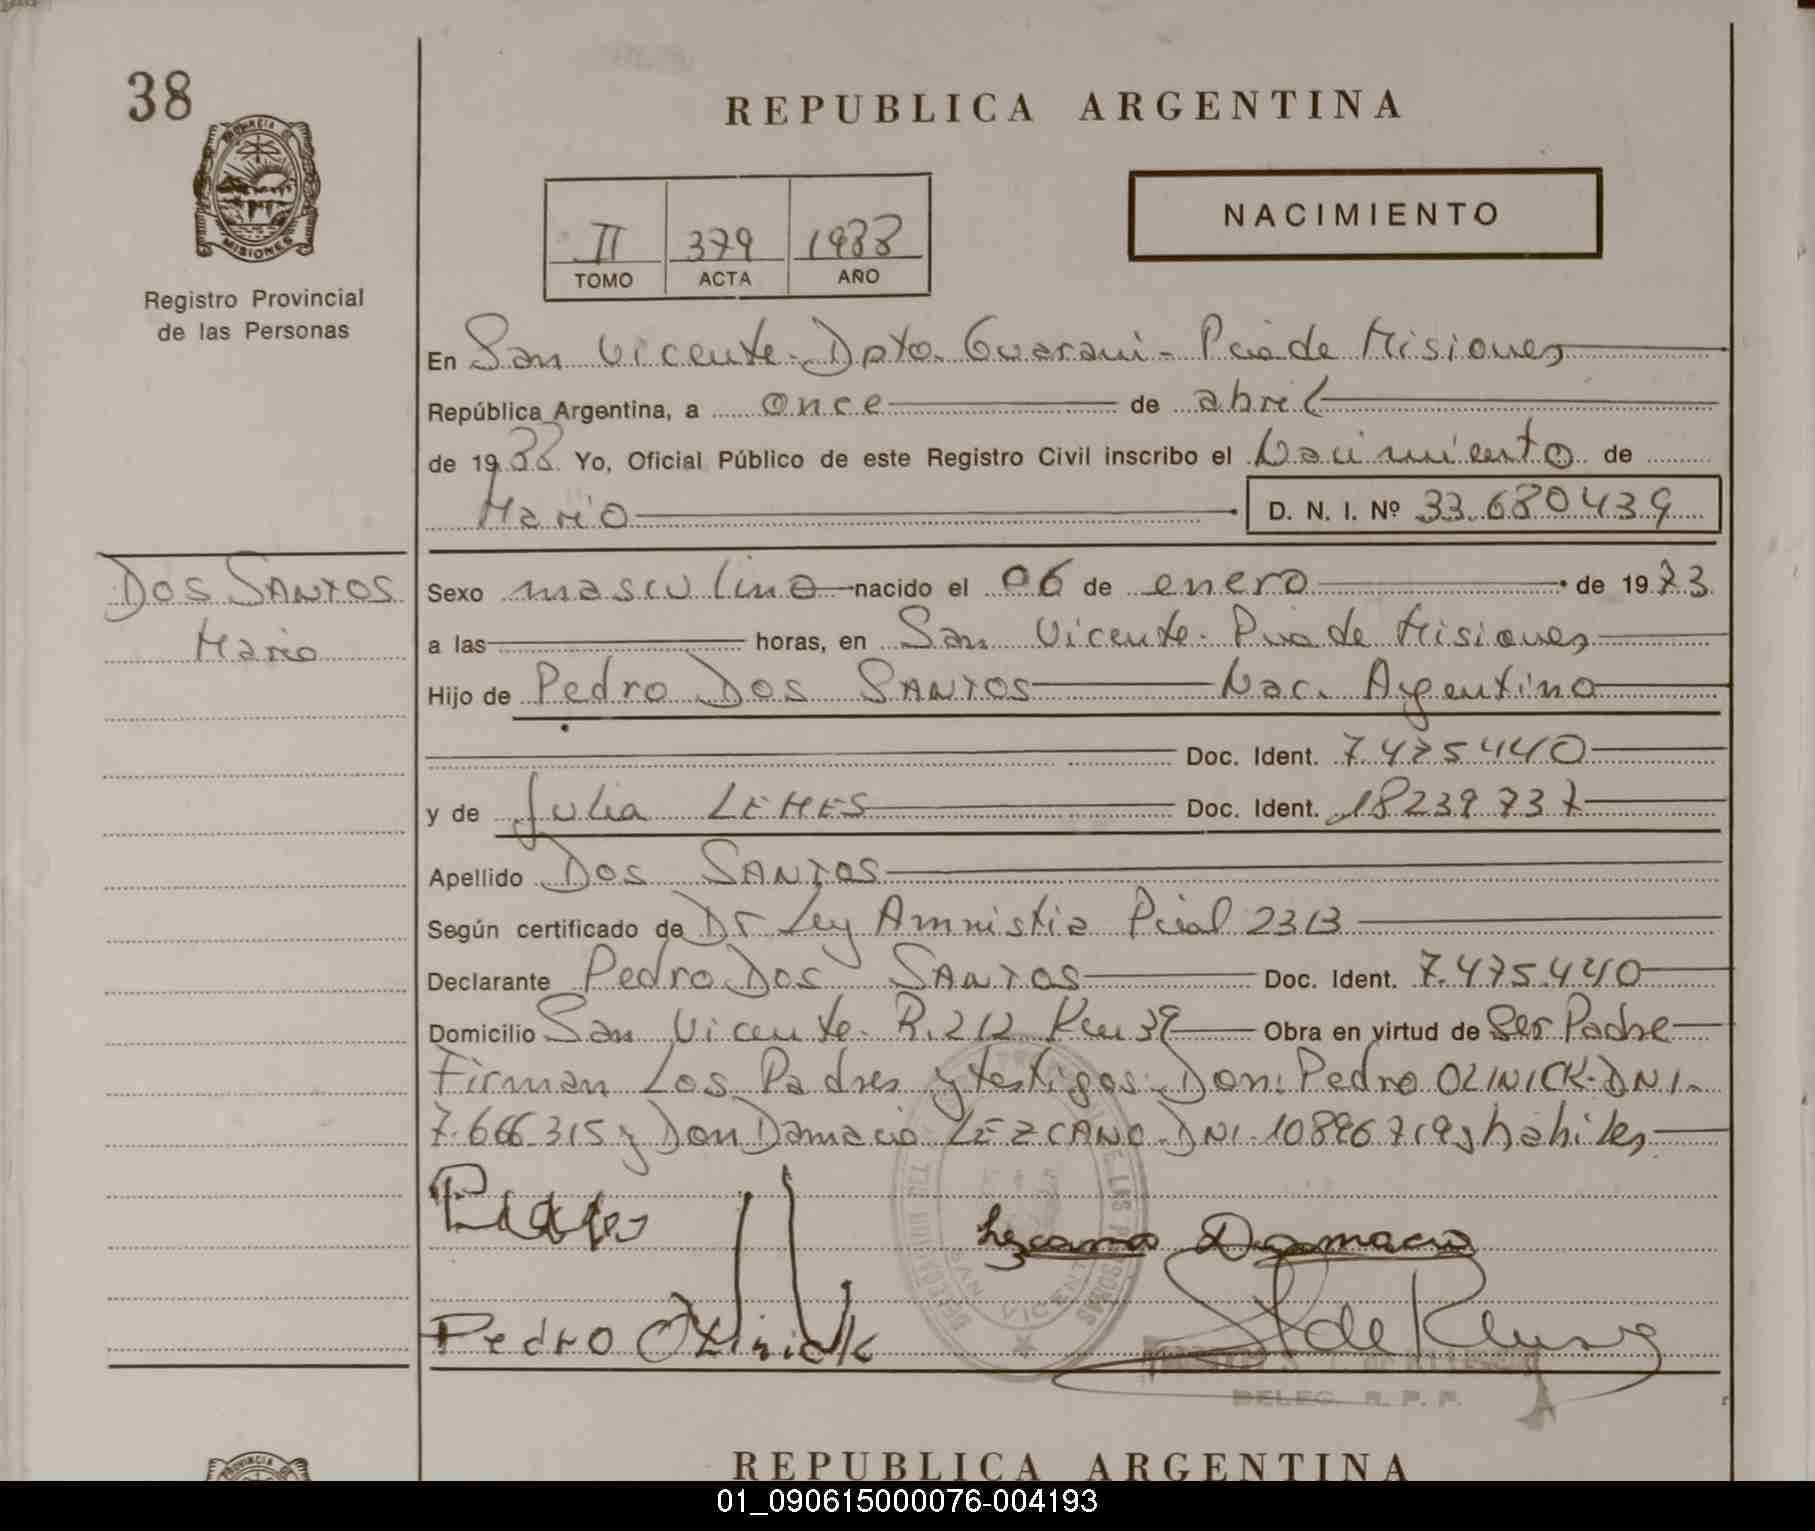 38
REPUBLICA ARGENTINA
PROVINCIA DE
MISIONES
Registro Provincial
de las Personas
II 379 1988
TOMO ACTA AÑO
NACIMIENTO
En San Vicente - Dpto. Guarani - Pcia de Misiones
República Argentina, a once de abril
de 1988 Yo, Oficial Público de este Registro Civil inscribo el Nacimiento de
Mario D. N. I. Nº 33.680439
DOS SANTOS
Mario
Sexo masculino nacido el 06 de enero de 1973
a las horas, en San Vicente - Pcia de Misiones
Hijo de Pedro DOS SANTOS Nac. Argentino
Doc. Ident. 7.475440
y de Julia LEMES Doc. Ident. 18239737
Apellido DOS SANTOS
Según certificado de Dr Ley Amnistia Pcial 2313
Declarante Pedro DOS SANTOS Doc. Ident. 7.475.440
Domicilio San Vicente - R. 212 Km 39 Obra en virtud de Ser Padre
Firman Los Padres y testigos: Don: Pedro OLINICK - DNI.
7.666.315 y Don Damacio LEZCANO - DNI. 10896719 habiles
Lezcano Damacio
Pedro Olinick
DELEG. R. P. P.
REPUBLICA ARGENTINA
PROVINCIA
01_090615000076-004193